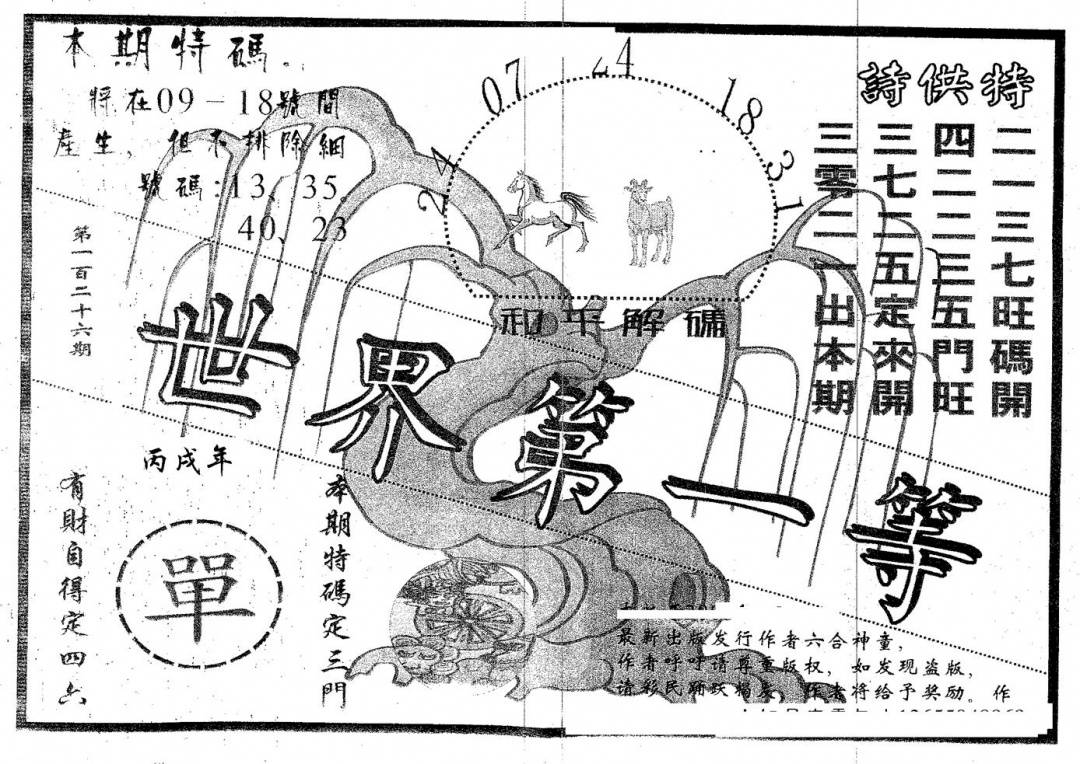 本期特碼。
將在09－18號間
產生，但不排除細
號碼:13、35、
40、23
第一百二十六期
24
07
24
18
31
和平解碼
特供詩
二一三七旺碼開
四二二三五門旺
三七二五定來開
三零二一出本期
世界第一等
丙戌年
有財自得定四六
單
本期特碼定三門
最新出版发行作者六合神童，
作者呼吁请尊重版权，如发现盗版，
请彩民踊跃揭发，作者将给予奖励。作